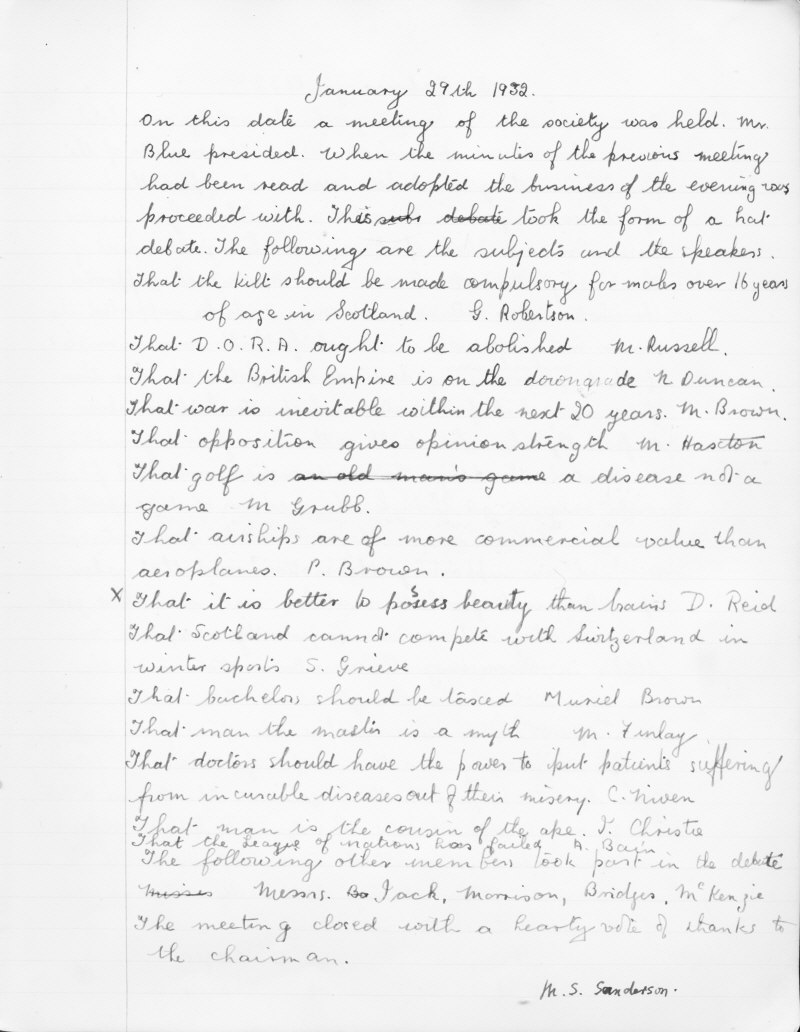 January 29th 1932.
On this date a meeting of the society was held. Mr.
Blue presided. When the minutes of the previous meeting
had been read and adopted the business of the evening was
proceeded with. This subs debate took the form of a hat
debate. The following are the subjects and the speakers.
That the kilt should be made compulsory for males over 16 years
of age in Scotland. G. Robertson.
That D.O.R.A. ought to be abolished M. Russell.
That the British Empire is on the downgrade N Duncan.
That war is inevitable within the next 20 years. M. Brown.
That opposition gives opinion strength M. Haston
That golf is an old man's game a disease not a
game M Grubb.
That airships are of more commercial value than
aeroplanes. P. Brown.
X That it is better to possess beauty than brains D. Reid
That Scotland cannot compete with Switzerland in
winter sports S. Grieve
That bachelors should be taxed Muriel Brown
That man the master is a myth M. Finlay.
That doctors should have the power to put patients suffering
from incurable diseases out of their misery. C. Niven
That man is the cousin of the ape. J. Christie
That the League of nations has failed A. Bain
The following other members took part in the debate
Misses Messrs. Bo Jack, Morrison, Bridges, McKenzie
The meeting closed with a hearty vote of thanks to
the chairman.
M. S. Sanderson.